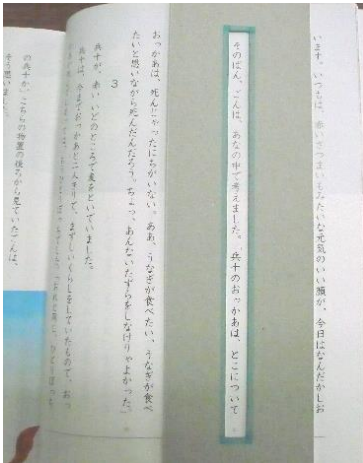 います。いつもは、赤いさつまいもみたいな元気のいい顔が、今日はなんだかしお
そのばん、ごんは、あなの中で考えました。「兵十のおっかあは、とこについて
おっかあは、死んじゃったにちがいない。ああ、うなぎが食べたい、うなぎが食べ
たいと思いながら死んだんだろう。ちょっ、あんないたずらをしなけりゃよかった。」
3
兵十が、赤いいどのところで麦をといでいました。
兵十は、今までおっかあと二人きりで、まずしいくらしをしていたもので、おっ
の兵十か。」こちらの物置の後ろから見ていたごんは、
そう思いました。